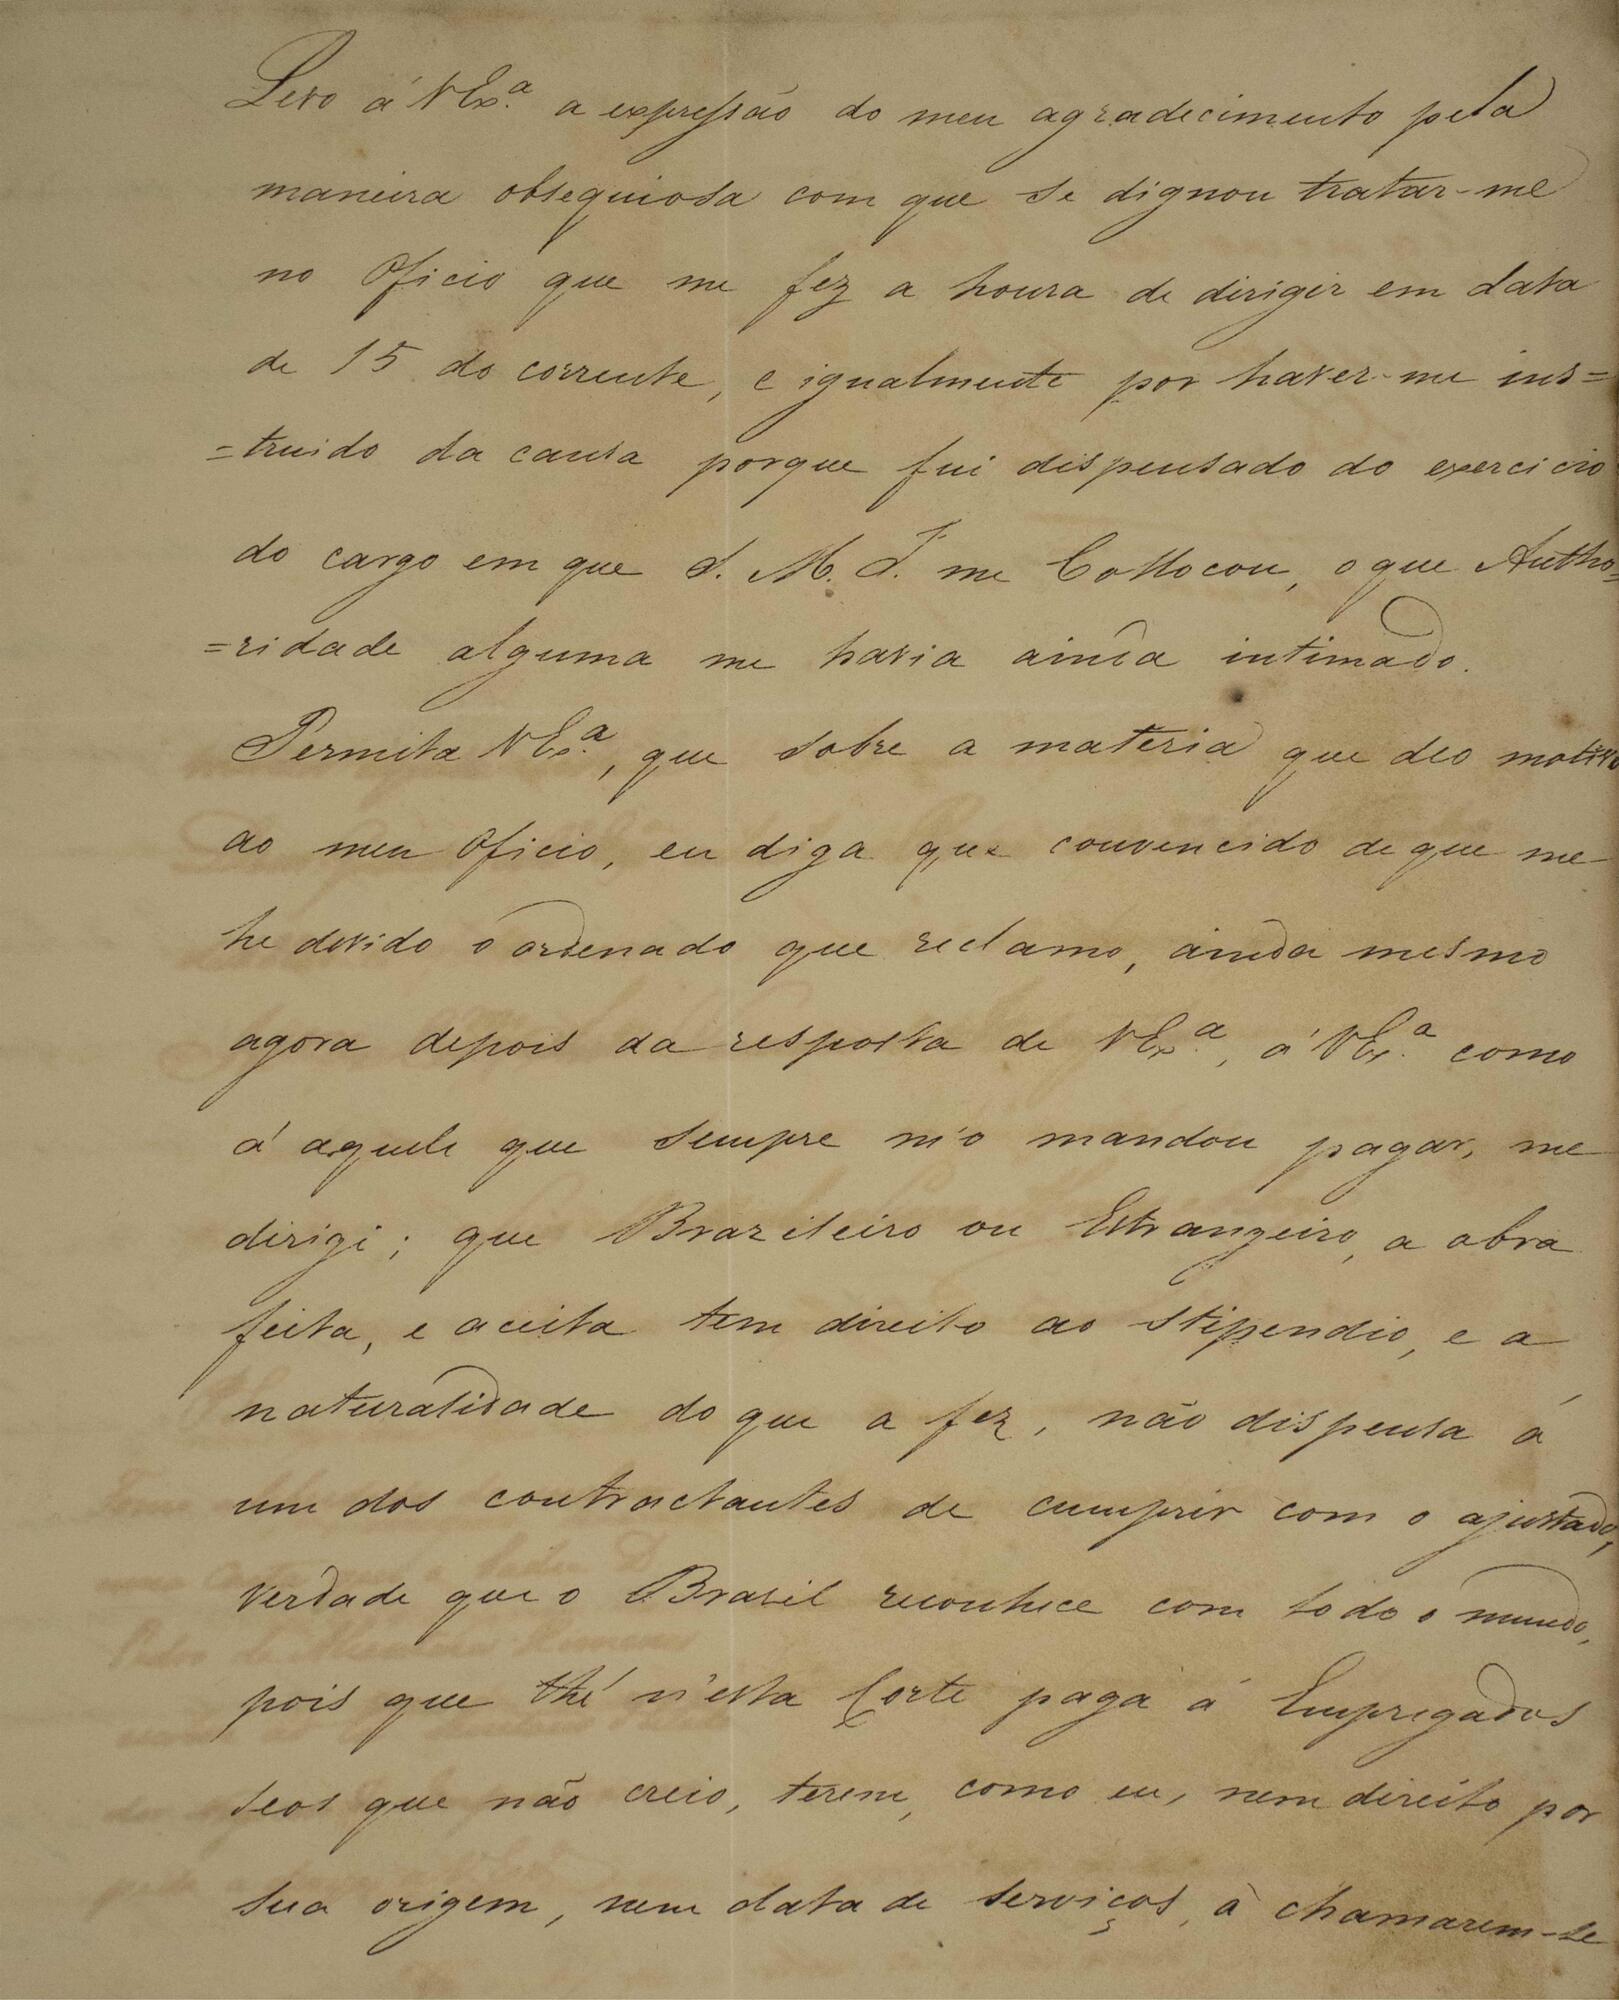 Levo á V Ex.ª a expressão do meu agradecimento pela
maneira obsequiosa com que se dignou tratar-me
no Oficio que me fez a honra de dirigir em data
de 15 do corrente, e igualmente por haver-me ins=
=truido da causa porque fui dispensado do exercicio
do cargo em que S. M. I. me Collocou, o que Autho=
=ridade alguma me havia ainda intimado.
Permita V Ex.ª, que sobre a materia que deo motivo
ao meu Oficio, eu diga que convencido de que me
he devido o ordenado que reclamo, ainda mesmo
agora depois da resposta de V Ex.ª, á V Ex.ª como
á aquele que sempre m'o mandou pagar, me
dirigi; que Brazileiro ou Estrangeiro, a obra
feita, e aceita tem direito ao stipendio, e a
naturalidade do que a fez, não dispensa á
um dos contractantes de cumprir com o ajustado,
verdade que o Brasil reconhece com todo o mundo,
pois que thé n'esta Corte paga á Empregados
seos que não creio, terem, como eu, nem direito por
sua origem, nem data de serviços, á chamarem-se